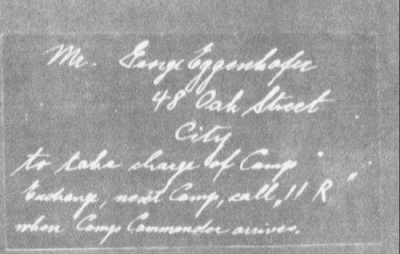 Mr. George Eggenhofer
48 Oak Street
City
to take charge of Camp "
Exchange, next Camp, call „11 R"
when Camp Commander arrives.